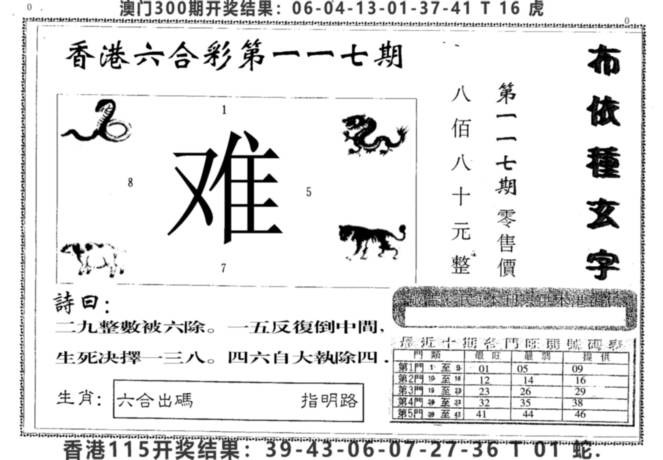 澳门300期开奖结果：06-04-13-01-37-41 T 16 虎
香港六合彩第一一七期
布依種玄字
第一一七期零售價
八佰八十元整
1
难
8
5
7
詩曰：
二九整數被六除。一五反復倒中間，
生死决擇一三八。四六自大執除四．
生肖：六合出碼 指明路
最近十期各門旺開號碼表
門類 最旺 最弱 提供
第1門 1 至 9 01 05 09
第2門 10 至 18 12 14 16
第3門 至 23 26 29
第4門 至 32 35 38
第5門 至 41 44 46
香港115开奖结果：39-43-06-07-27-36 T 01 蛇.